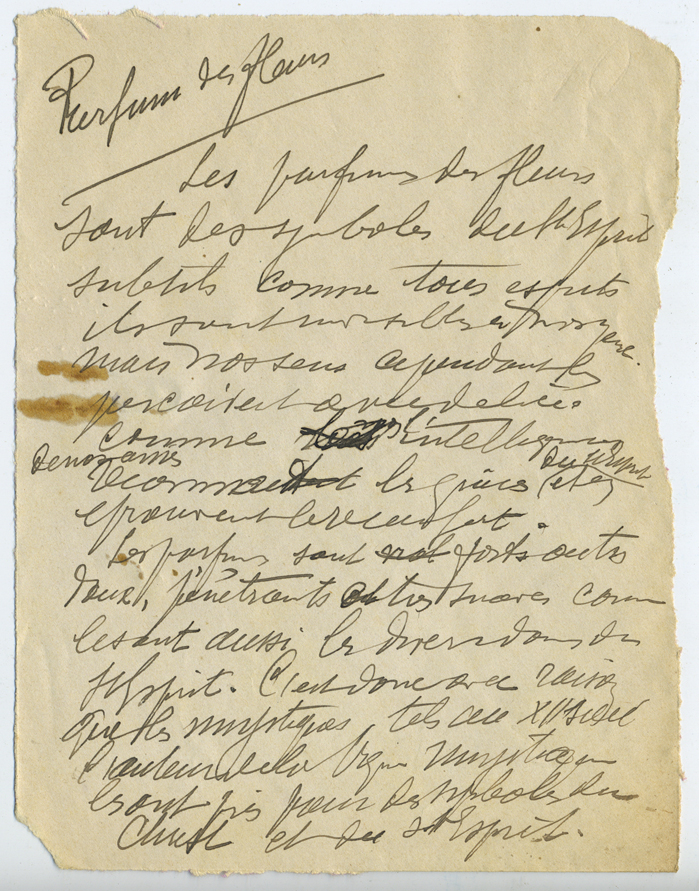 Parfum des fleurs
Les parfums des fleurs
sont des symboles du St Esprit
subtils comme tous esprits
ils sont invisibles et
mais nos sens cependant les
perçoivent avec délices
comme l'intelligence
de nos âmes du St Esprit
reconnait les grâces (et en
éprouvent le réconfort.
Les parfums sont forts
doux, pénétrants et très suaves comme
le sont aussi les divers dons du
St Esprit. C'est donc avec raison
que les mystiques, tels au siècle
l'auteur de la Vigne mystique
les ont pris pour des symboles du
Christ et du St Esprit.